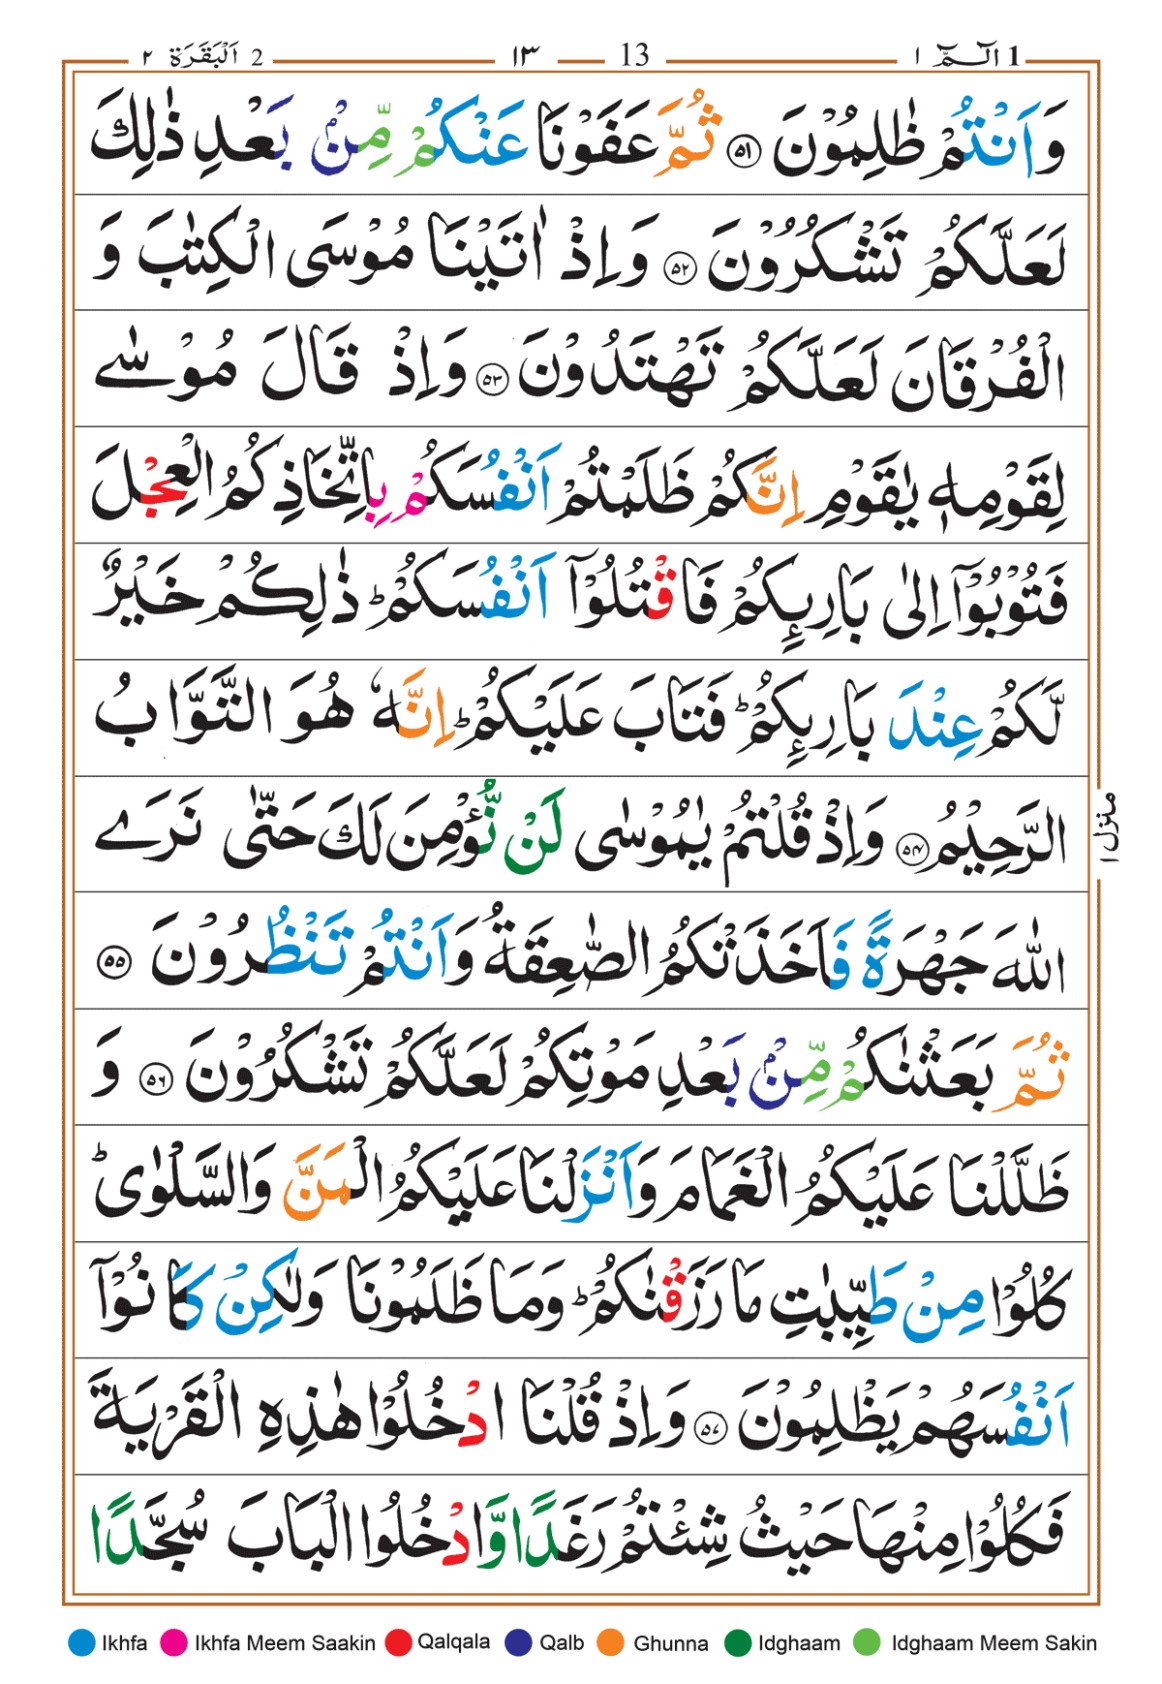 1 الٓـمّٓ ١ 13 ١٣ 2 اَلْبَقَرَة ٢
وَاَنْتُمْ ظٰلِمُوْنَ ٥١ ثُمَّ عَفَوْنَا عَنْكُمْ مِّنْۢ بَعْدِ ذٰلِكَ
لَعَلَّكُمْ تَشْكُرُوْنَ ٥٢ وَاِذْ اٰتَيْنَا مُوْسَى الْكِتٰبَ وَ
الْفُرْقَانَ لَعَلَّكُمْ تَهْتَدُوْنَ ٥٣ وَاِذْ قَالَ مُوْسٰے
لِقَوْمِهٖ يٰقَوْمِ اِنَّكُمْ ظَلَمْتُمْ اَنْفُسَكُمْ بِاتِّخَاذِكُمُ الْعِجْلَ
فَتُوْبُوْٓا اِلٰى بَارِىِٕكُمْ فَاقْتُلُوْٓا اَنْفُسَكُمْ ؕ ذٰلِكُمْ خَيْرٌ
لَّكُمْ عِنْدَ بَارِىِٕكُمْ ؕ فَتَابَ عَلَيْكُمْ ؕ اِنَّهٗ هُوَ التَّوَّابُ
الرَّحِيْمُ ٥٤ وَاِذْ قُلْتُمْ يٰمُوْسٰى لَنْ نُّؤْمِنَ لَكَ حَتّٰى نَرَے
اللّٰهَ جَهْرَةً فَاَخَذَتْكُمُ الصّٰعِقَةُ وَاَنْتُمْ تَنْظُرُوْنَ ٥٥
ثُمَّ بَعَثْنٰكُمْ مِّنْۢ بَعْدِ مَوْتِكُمْ لَعَلَّكُمْ تَشْكُرُوْنَ ٥٦ وَ
ظَلَّلْنَا عَلَيْكُمُ الْغَمَامَ وَاَنْزَلْنَا عَلَيْكُمُ الْمَنَّ وَالسَّلْوٰى ؕ
كُلُوْا مِنْ طَيِّبٰتِ مَا رَزَقْنٰكُمْ ؕ وَمَا ظَلَمُوْنَا وَلٰكِنْ كَانُوْٓا
اَنْفُسَهُمْ يَظْلِمُوْنَ ٥٧ وَاِذْ قُلْنَا ادْخُلُوْا هٰذِهِ الْقَرْيَةَ
فَكُلُوْا مِنْهَا حَيْثُ شِئْتُمْ رَغَدًا وَّادْخُلُوا الْبَابَ سُجَّدًا
منزل ١
Ikhfa Ikhfa Meem Saakin Qalqala Qalb Ghunna Idghaam Idghaam Meem Sakin